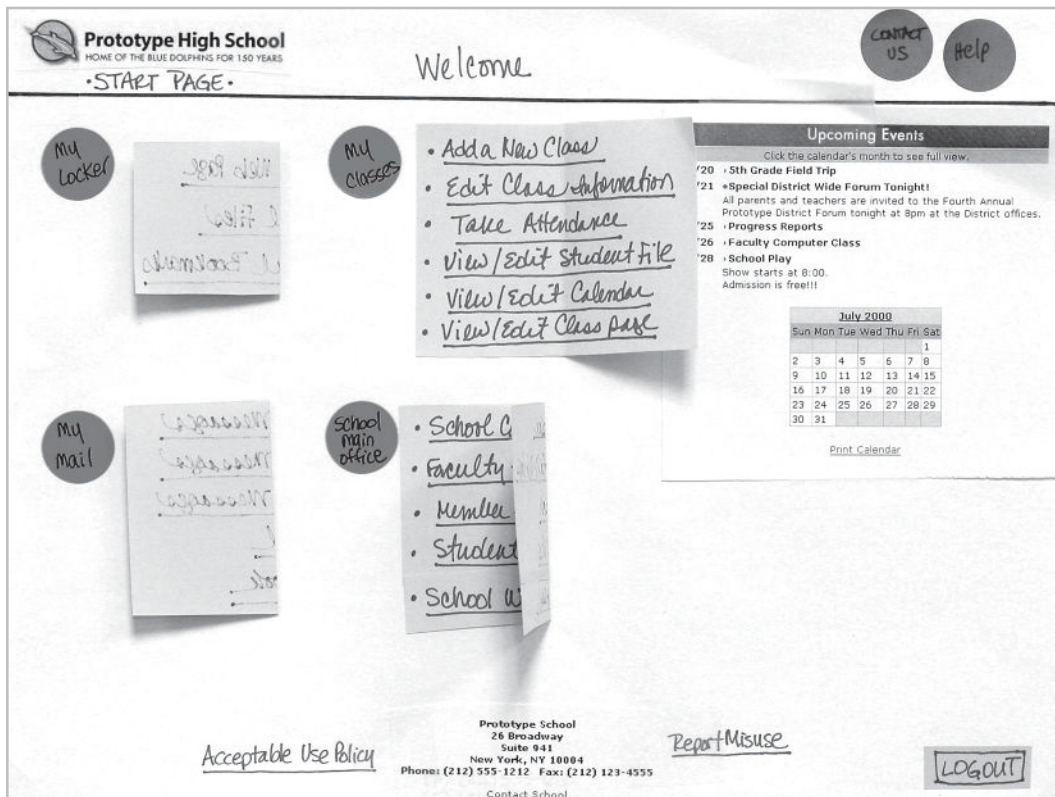 Prototype High School
HOME OF THE BLUE DOLPHINS FOR 150 YEARS
• START PAGE •
Welcome
CONTACT
US
Help
My
Locker
Web Page
Files
Bookmarks
My
Classes
• Add a New Class
• Edit Class Information
• Take Attendance
• View/Edit Student File
• View/Edit Calendar
• View/Edit Class page
Upcoming Events
Click the calendar's month to see full view.
/20 5th Grade Field Trip
/21 Special District Wide Forum Tonight!
All parents and teachers are invited to the Fourth Annual
Prototype District Forum tonight at 8pm at the District offices.
/25 Progress Reports
/26 Faculty Computer Class
/28 School Play
Show starts at 8:00.
Admission is free!!!
July 2000
Sun Mon Tue Wed Thu Fri Sat
1
2 3 4 5 6 7 8
9 10 11 12 13 14 15
16 17 18 19 20 21 22
23 24 25 26 27 28 29
30 31
Print Calendar
My
Mail
Messages
Messages
Messages
School
main
office
• School
• Faculty
• Member
• Student
• School
Acceptable Use Policy
Prototype School
26 Broadway
Suite 941
New York, NY 10004
Phone: (212) 555-1212 Fax: (212) 123-4555
Contact School
Report Misuse
LOGOUT